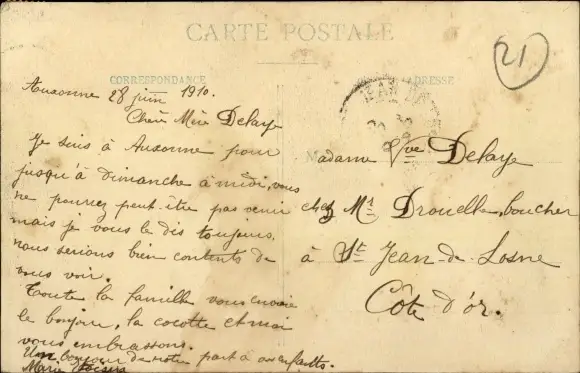 CARTE POSTALE
21
CORRESPONDANCE
ADRESSE
Auxonne 28 juin 1910.
Chère Mère Delaye
Je suis à Auxonne pour
jusqu'à dimanche à midi, vous
ne pourrez peut-être pas venir
mais je vous le dis toujours,
nous serions bien contents de
vous voir.
Toute la famille vous envoie
le bonjour, la cocotte et moi
vous embrassons.
Un bonjour de notre part à vos enfants.
Marie
Madame Vve Delaye
chez Mr Drouelle, boucher
à St Jean-de-Losne
Côte d'or.